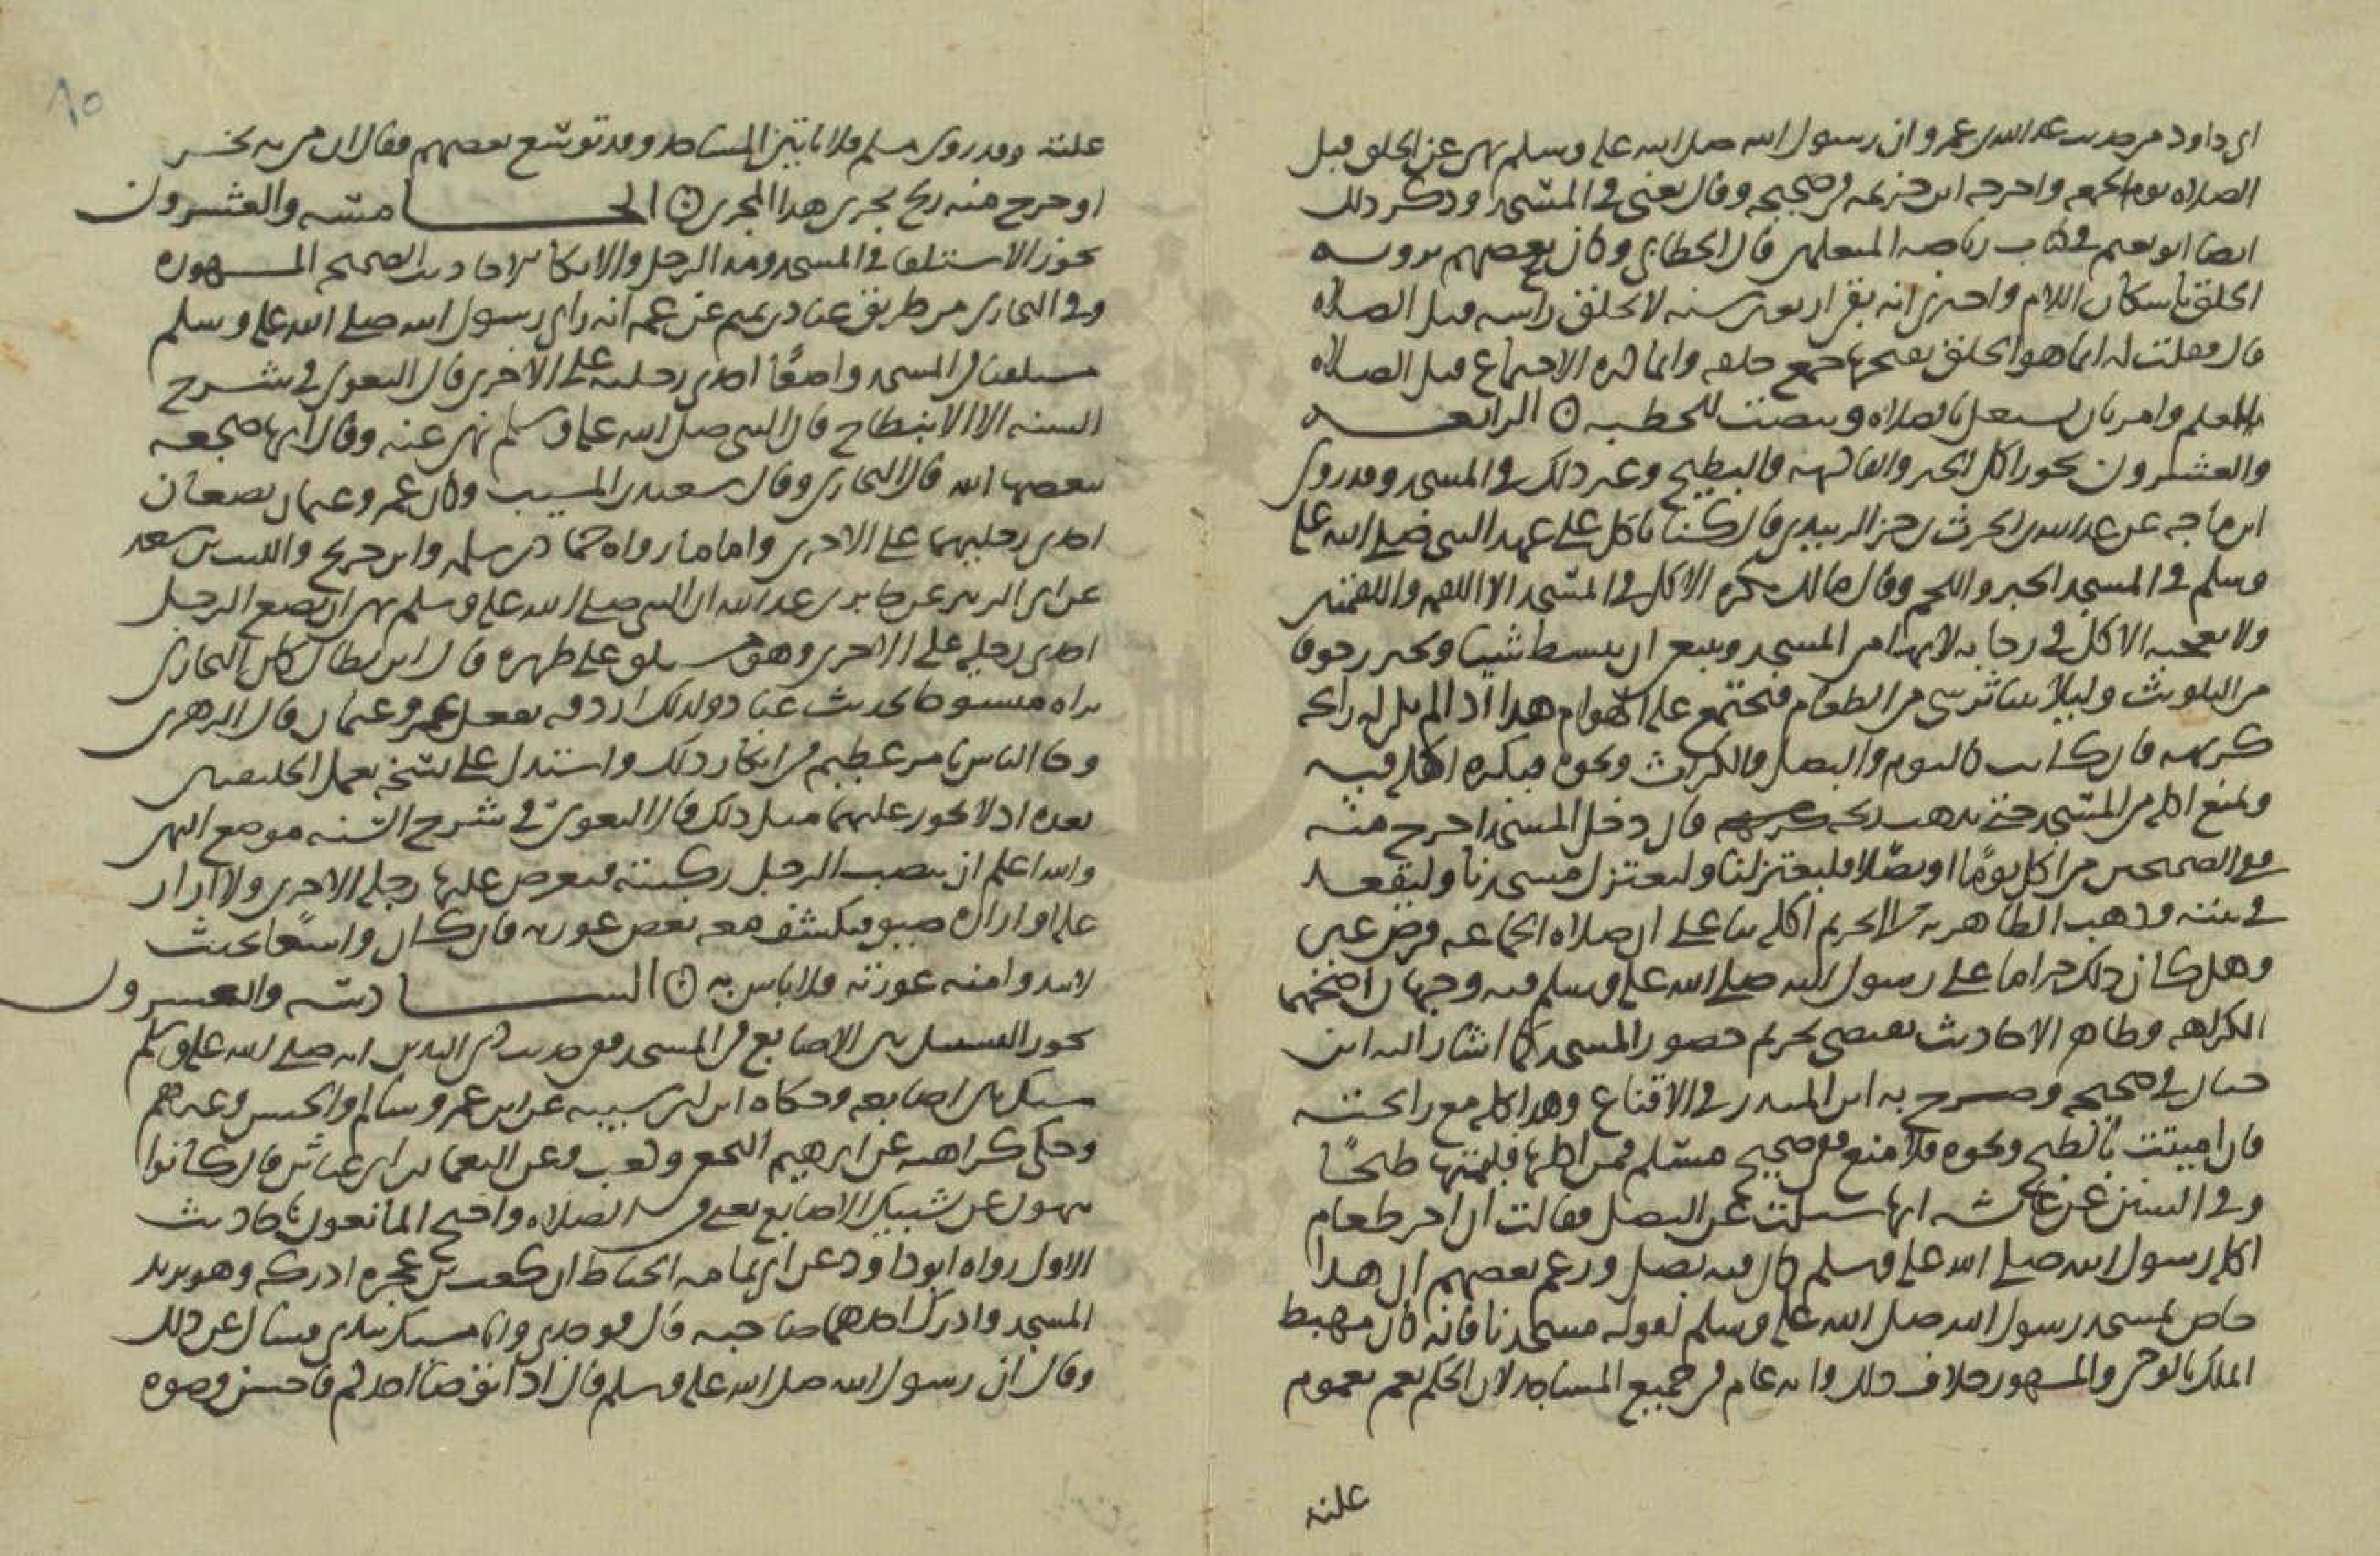 ابي داود من حديث عبد الله بن عمرو ان رسول الله صلى الله عليه وسلم نهى عن الحلق قبل
الصلاه يوم الجمعه واخرجه ابن خزيمه في صحيحه وقال يعني في المسجد وذكر ذلك
ايضا ابو نعيم في كتاب رياضه المتعلمين قال الخطابي وكان بعضهم يرويه
الحلق باسكان اللام واخبرني انه بقي اربعين سنه لا يحلق راسه قبل الصلاه
قال فقلت له انما هو الحلق بفتحها جمع حلقه وانما كره الاجتماع قبل الصلاه
للعلم وامر بان يشتغل بالصلاه وينصت للخطبه ۞ الرابعـــه
والعشرون يجوز اكل الخبز والفاكهه والبطيخ وغير ذلك في المسجد وقد روى
ابن ماجه عن عبد الله بن الحرث بن جزء الزبيدي قال كنا ناكل على عهد النبي صلى الله عليه
وسلم في المسجد الخبز واللحم وقال مالك يكره الاكل في المسجد الا اللقمه واللقمتين
ولا يعجبه الاكل في رحابه لانها من المسجد وينبغي ان يبسط شيا ويحترز خوفا
من التلويث وليلا يتناثر شي من الطعام فتجتمع عليه الهوام هذا اذا لم يكن له رائحه
كريهه فان كانت كالثوم والبصل والكراث ونحوه فيكره اكله فيه
ويمنع اكله من المسجد حتى يذهب ريحه فان دخل المسجد اخرج منه
ففي الصحيحين من اكل ثوما او بصلا فليعتزلنا وليعتزل مسجدنا وليقعد
في بيته وذهب الظاهريه الى تحريم اكله بنا على ان صلاه الجماعه فرض عين
وهل كان ذلك حراما على رسول الله صلى الله عليه وسلم فيه وجهان اصحهما
الكراهه وظاهر الاحاديث يقتضي تحريم حضور المسجد كما اشار اليه ابن
حبان في صحيحه وصرح به ابن المنذر في الاقناع وهذا كله مع رائحته
فان اميتت بالطبخ ونحوه فلا منع ففي صحيح مسلم فمن اكلها فليمتها طبخا
وفي السنن عن عائشه انها سئلت عن البصل فقالت ان اخر طعام
اكله رسول الله صلى الله عليه وسلم كان فيه بصل وزعم بعضهم ان هذا
خاص بمسجد رسول الله صلى الله عليه وسلم لقوله مسجدنا فانه كان مهبط
الملك بالوحي والمشهور خلاف ذلك وانه عام في جميع المساجد لان الحكم يعم بعموم
علته
١٥
علته وقد روى مسلم فلا ياتين المساجد وقد توسع بعضهم فقال ان من به بخر
او جرح منه ريح يجري هذا المجرى ۞ الخـــامسه والعشرون
يجوز الاستلقا في المسجد ومد الرجل والاتكا للاحاديث الصحيحه المشهوره
وفي البخاري من طريق عباد بن تميم عن عمه انه راى رسول الله صلى الله عليه وسلم
مستلقيا في المسجد واضعا احدى رجليه على الاخرى قال البغوي في شرح
السنه الا الانبطاح فان النبي صلى الله عليه وسلم نهى عنه وقال انها ضجعه
يبغضها الله قال البخاري وقال سعيد بن المسيب وكان عمر وعثمان يضعان
احدى رجليهما على الاخرى واما ما رواه حماد بن سلمه وابن جريج والليث بن سعد
عن ابي الزبير عن جابر بن عبد الله ان النبي صلى الله عليه وسلم نهى ان يضع الرجل
احدى رجليه على الاخرى وهو مستلق على ظهره قال ابن بطال كان البخاري
يراه منسوخا بحديث عباد ولذلك اردفه بفعل عمر وعثمان قال الزهري
وجا الناس بامر عظيم في انكار ذلك واستدل على نسخه بعمل الخليفتين
بعده اذ لا يجوز عليهما مثل ذلك قال البغوي في شرح السنه موضع النهي
والله اعلم ان ينصب الرجل ركبته فيعرض عليها رجله الاخرى ولا ازار
عليه او ازاره ضيق فينكشف معه بعض عورته فان كان واسعا بحيث
لا تبدوا منه عورته فلا باس به ۞ الســـادسه والعشرون
يجوز التشبيك بين الاصابع في المسجد ففي حديث ذي اليدين انه صلى الله عليه وسلم
شبك بين اصابعه وحكاه ابن ابي شيبه عن ابن عمر وسالم والحسن وغيرهم
وحكى كراهته عن ابرهيم النخعي وكعب وعن النعمان بن ابي عياش قال كانوا
ينهون عن تشبيك الاصابع يعني في الصلاه واحتج المانعون باحاديث
الاول رواه ابو داود عن ابي ثمامه الحناط ان كعب بن عجره ادركه وهو يريد
المسجد وادرك احدهما صاحبه قال فوجدني وانا مشبك بيدي فنهاني عن ذلك
وقال ان رسول الله صلى الله عليه وسلم قال اذا توضا احدكم فاحسن وضوه